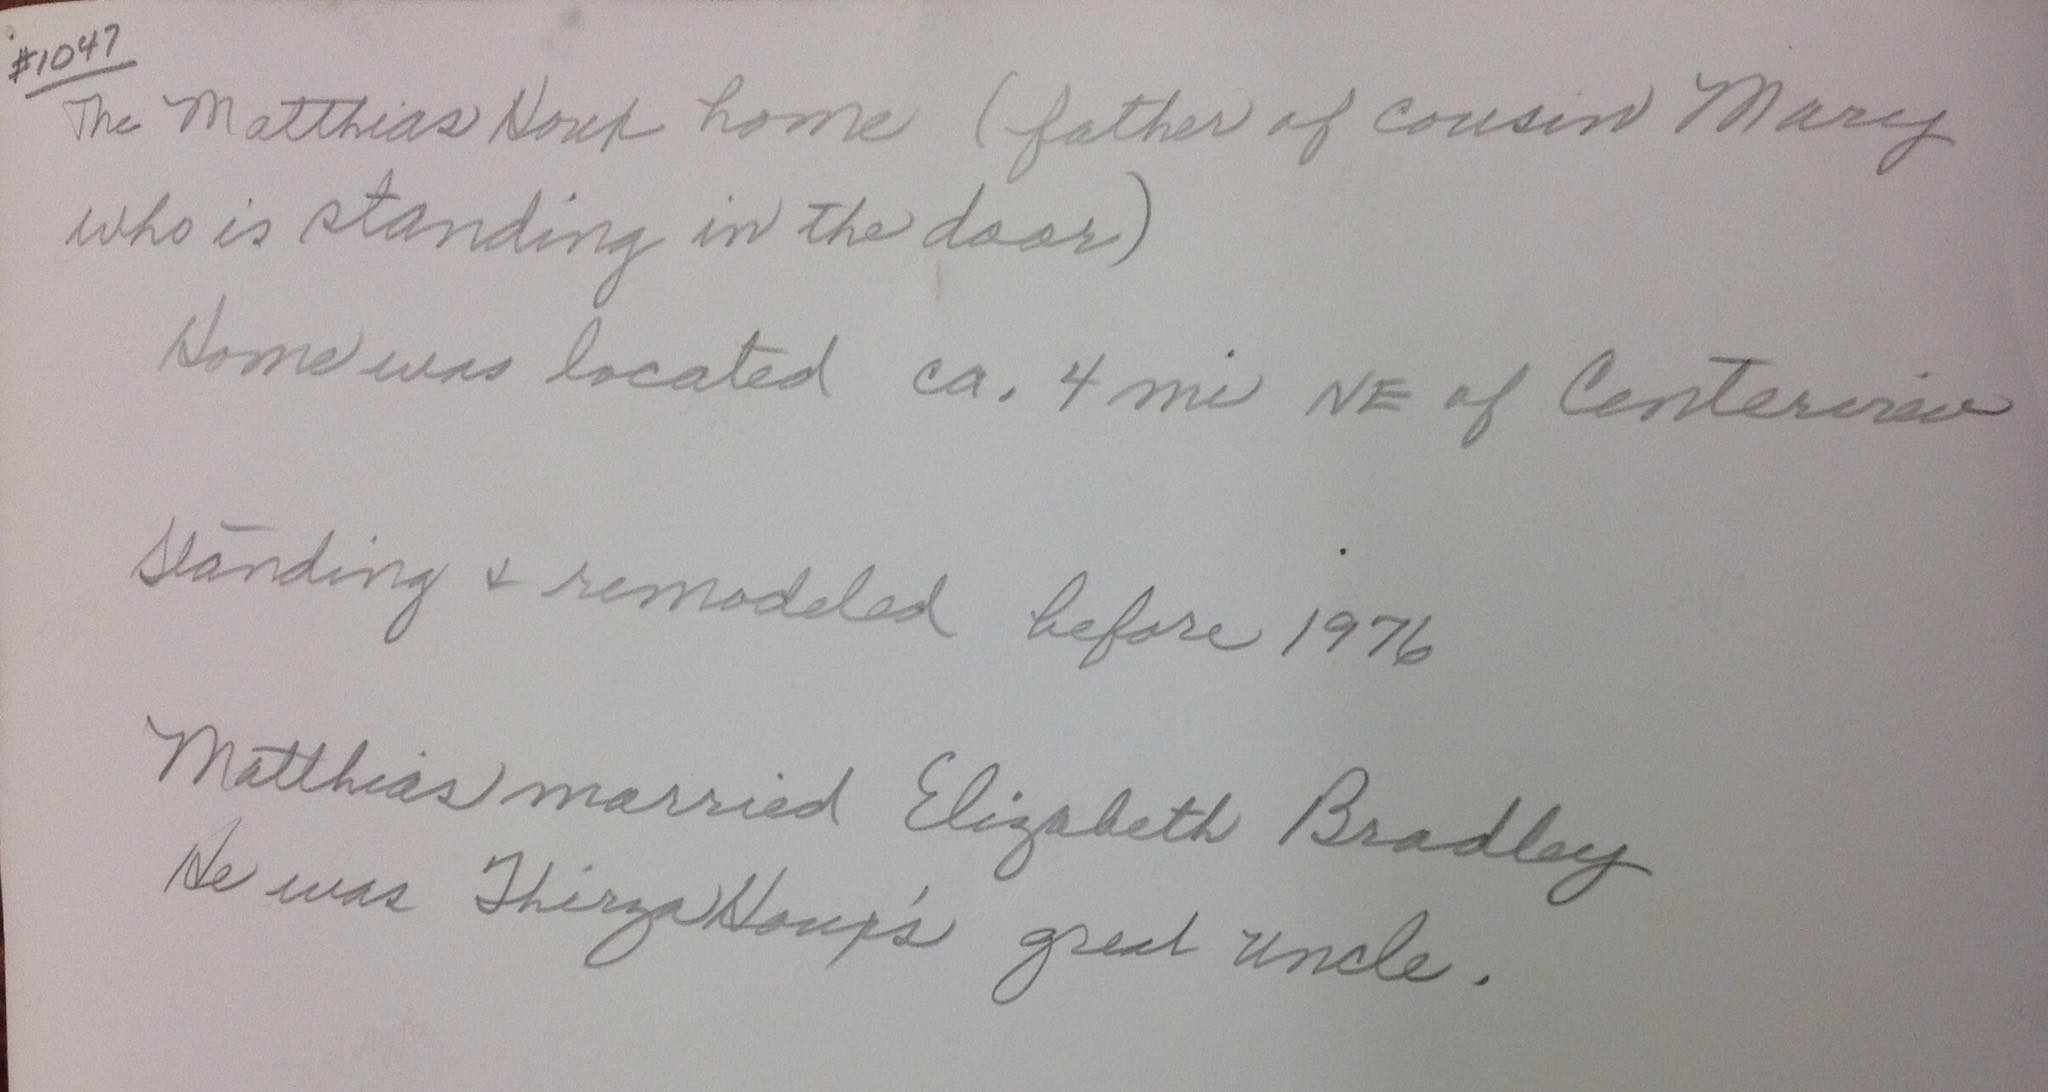 #1047
The Matthias Houx home (father of cousin Mary
who is standing in the door)
Home was located ca. 4 mi NE of Centerview
Standing & remodeled before 1976
Matthias married Elizabeth Bradley
He was Thirza Houx's great uncle.